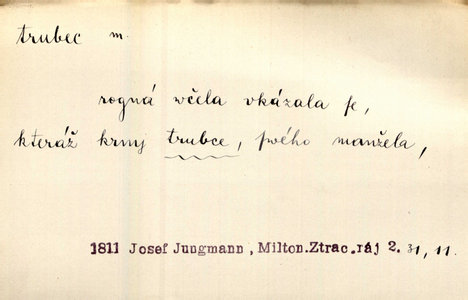 trubec m.
rogná wčela vkázala ſe,
kteráž krmj trubce, ſwého manžela,
1811 Josef Jungmann, Milton.Ztrac.ráj 2. 31, 11.